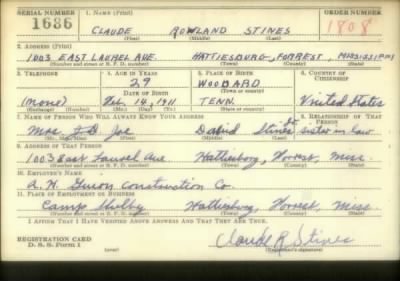 SERIAL NUMBER 1. NAME (Print) ORDER NUMBER
1686 CLAUDE ROWLAND STINES 1808
(First) (Middle) (Last)
2. ADDRESS (Print)
1003 EAST LAUREL AVE. HATTIESBURG, FORREST, MISSISSIPPI
(Number and street or R. F. D. number) (Town) (County) (State)
3. TELEPHONE 4. AGE IN YEARS 5. PLACE OF BIRTH 6. COUNTRY OF CITIZENSHIP
29 WOODARD
DATE OF BIRTH (Town or county)
(none) Feb. 14, 1911 TENN. United States
(Exchange) (Number) (Mo.) (Day) (Yr.) (State or country)
7. NAME OF PERSON WHO WILL ALWAYS KNOW YOUR ADDRESS 8. RELATIONSHIP OF THAT PERSON
Mrs. Joe David Stines sister in law
(Mr., Mrs., Miss) (First) (Middle) (Last)
9. ADDRESS OF THAT PERSON
1003 East Laurel Ave Hattiesburg, Forrest, Miss.
(Number and street or R. F. D. number) (Town) (County) (State)
10. EMPLOYER'S NAME
Construction Co.
11. PLACE OF EMPLOYMENT OR BUSINESS
Camp Shelby Hattiesburg, Forrest, Miss.
(Number and street or R. F. D. number) (Town) (County) (State)
I AFFIRM THAT I HAVE VERIFIED ABOVE ANSWERS AND THAT THEY ARE TRUE.
REGISTRATION CARD Claude R. Stines
D. S. S. Form 1 (Registrant's signature)